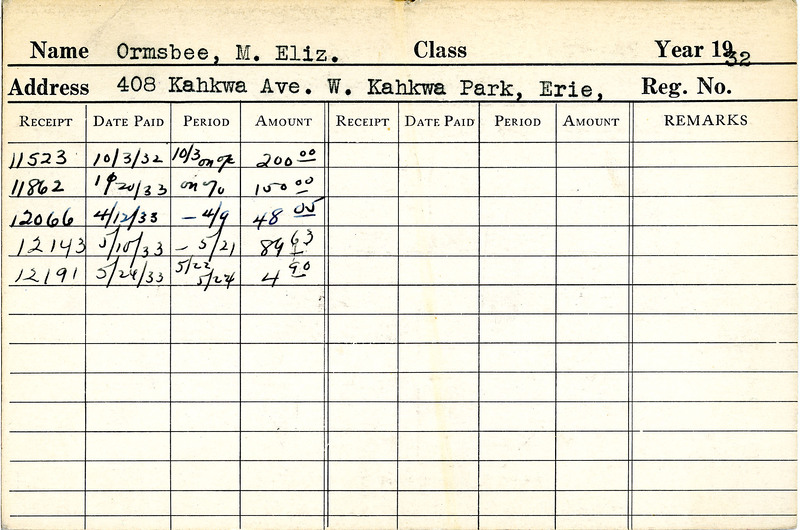 Name Ormsbee, M. Eliz. Class Year 1932
Address 408 Kahkwa Ave. W. Kahkwa Park, Erie, Reg. No.
RECEIPT DATE PAID PERIOD AMOUNT RECEIPT DATE PAID PERIOD AMOUNT REMARKS
11523 10/3/32 10/3 on 200 00
11862 20/33 on 150 00
12066 4/12/33 – 4/9 48 05
12143 5/10/33 – 5/21 89 63
12191 5/24/33 5/22 5/24 4 90